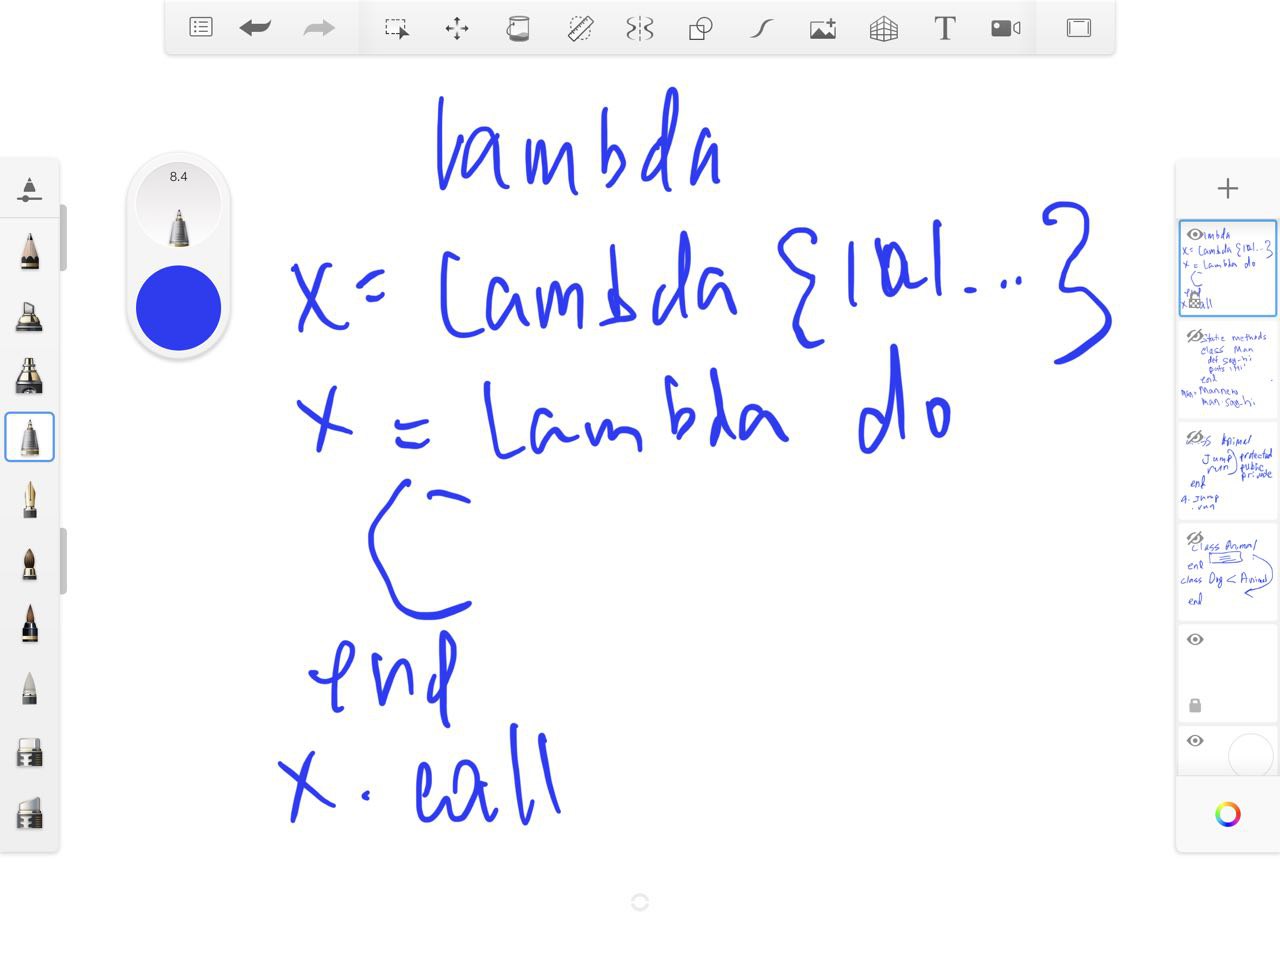 8.4
T
lambda
x = Lambda {|a|...}
x = Lambda do
end
x.call
lambda
x = Lambda {|a|...}
x = Lambda do
end
x.call
Static methods
class Man
def say-hi
puts "hi"
end
man.say-hi
Class Animal
Jump
run
protected
public
private
end
A. Jump
.run
class Animal
end
class Dog < Animal
end